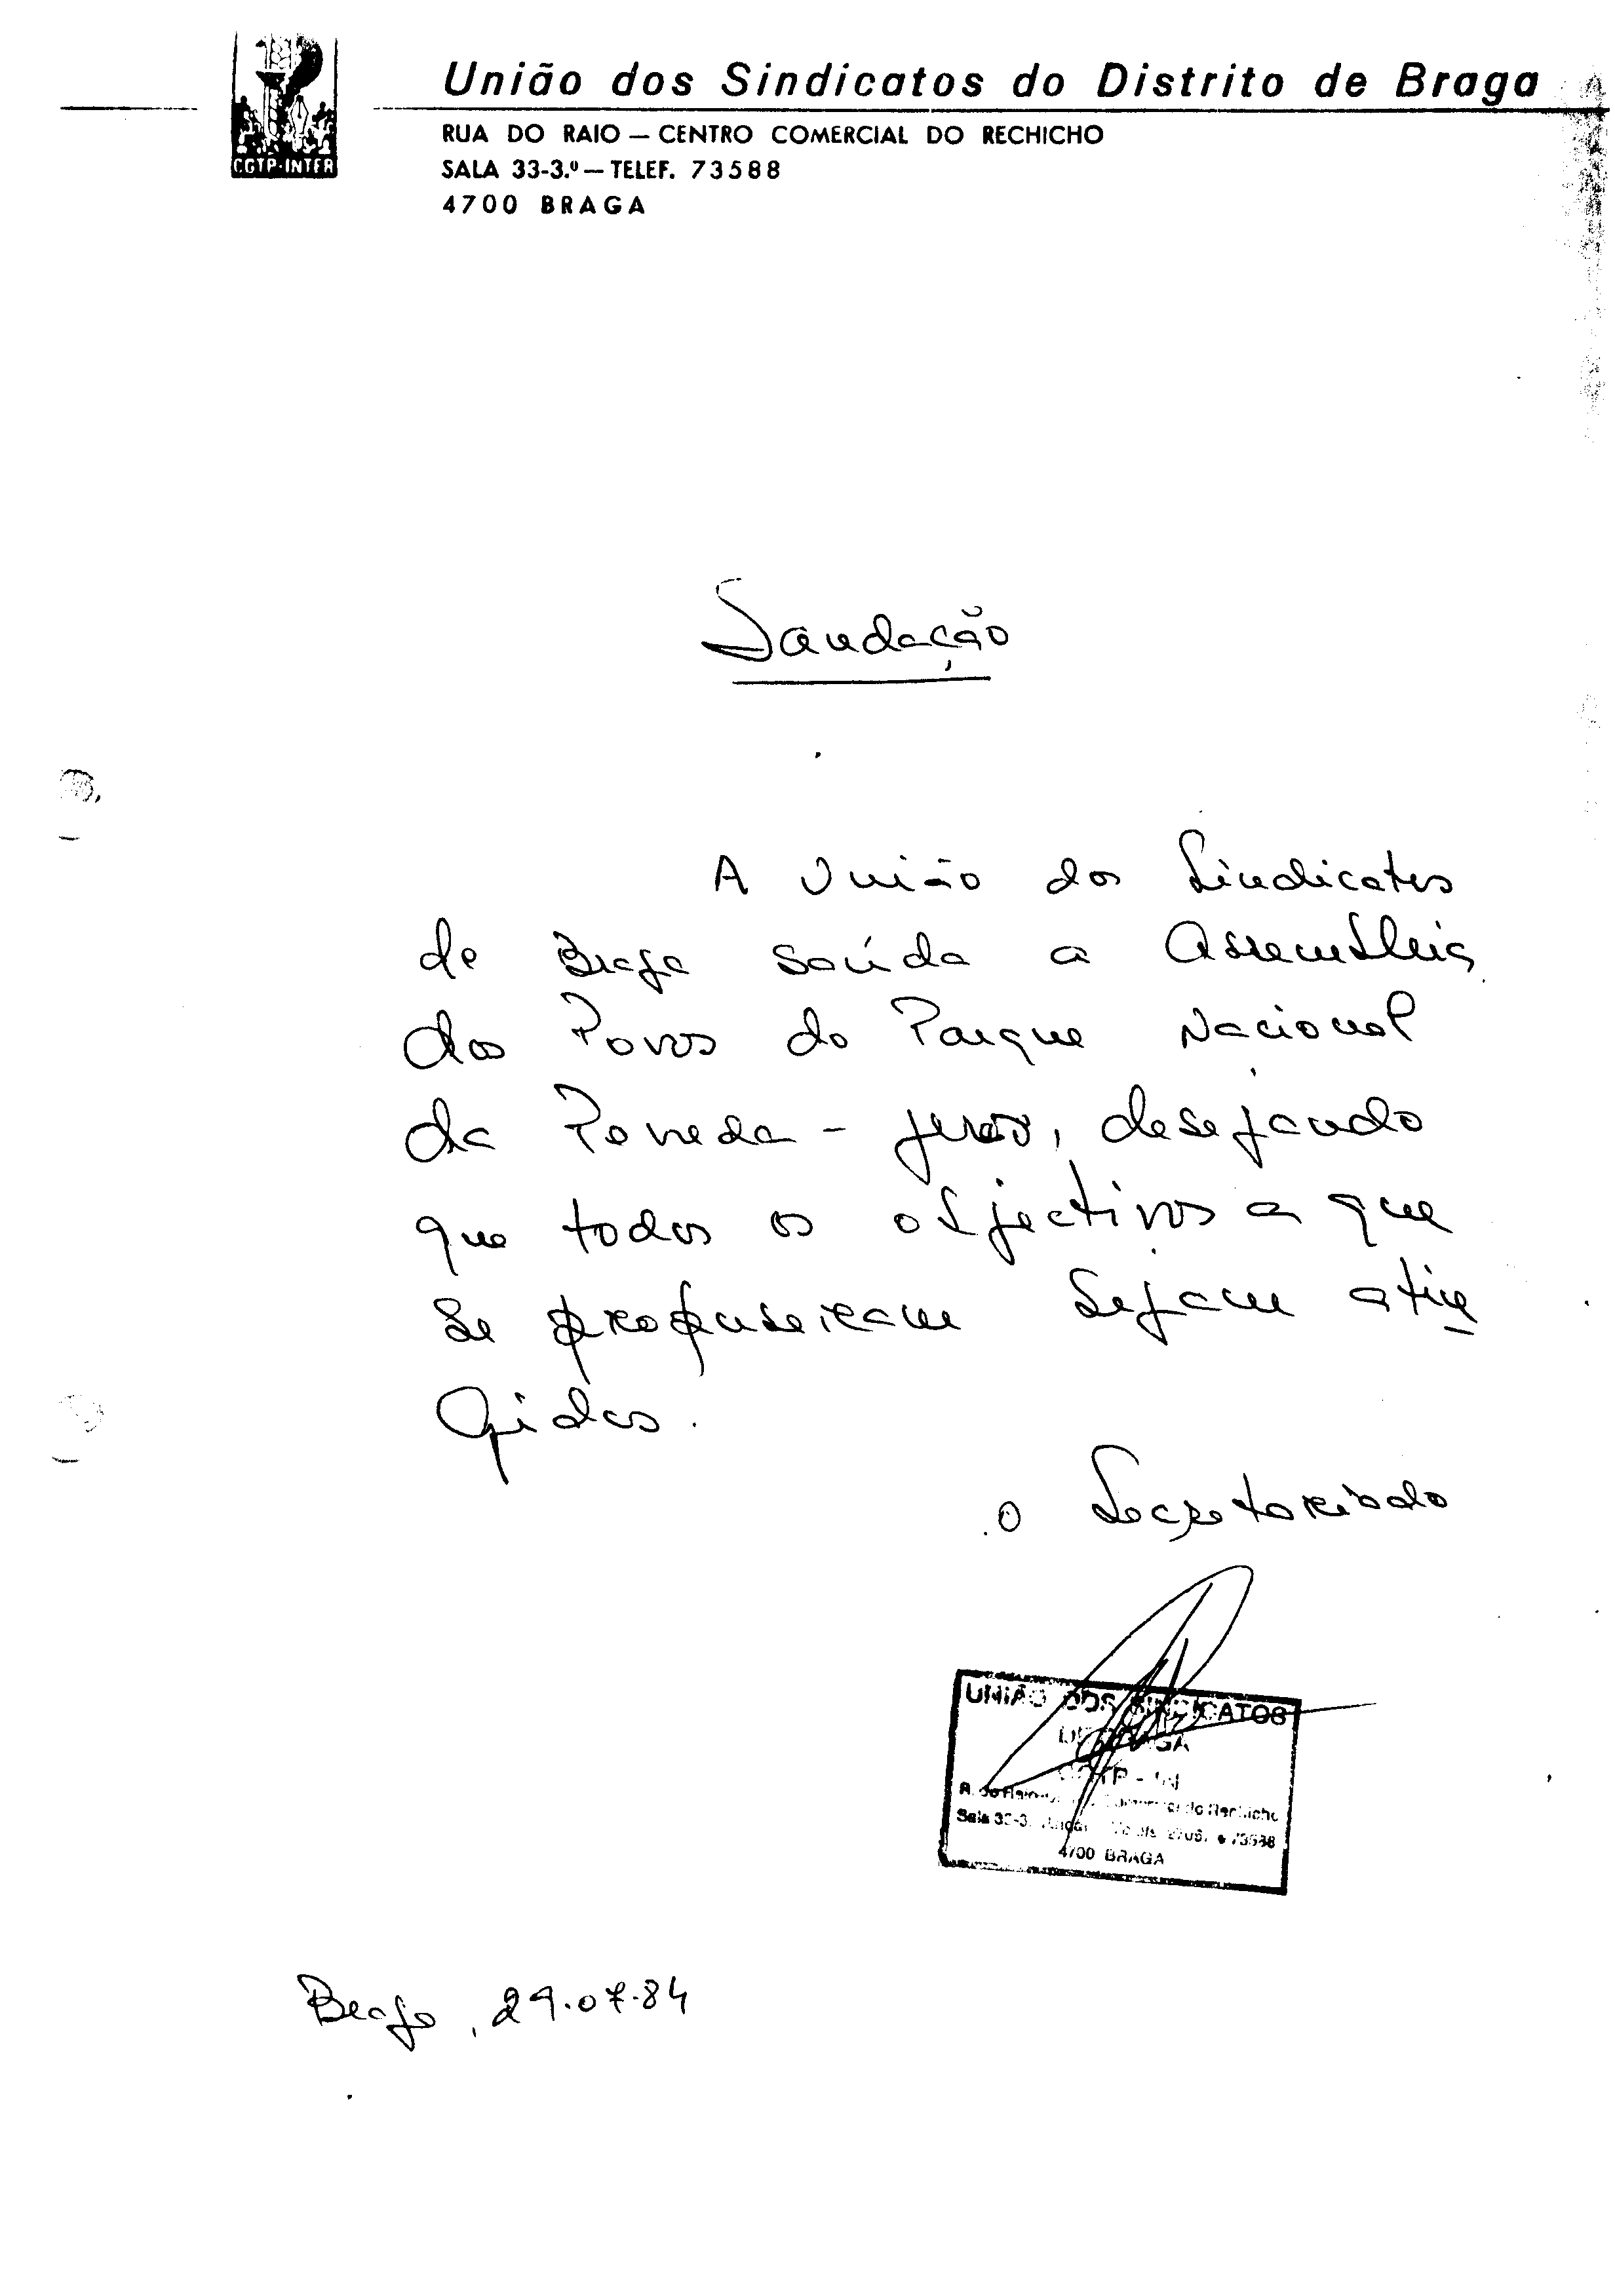 União dos Sindicatos do Distrito de Braga
RUA DO RAIO — CENTRO COMERCIAL DO RECHICHO
SALA 33-3.º — TELEF. 73588
4700 BRAGA
CGTP-INTER
Saudação
A União dos Sindicatos
de Braga saúda a Assembleia
dos Povos do Parque Nacional
da Peneda - Jerez, desejando
que todos os objectivos a que
se propuseram sejam atin
gidos.
O Secretariado
UNIÃO DOS SINDICATOS
DE BRAGA
CGTP - IN
do Rechicho
Sala 33-3. 73588
4700 BRAGA
Braga, 29.07.84